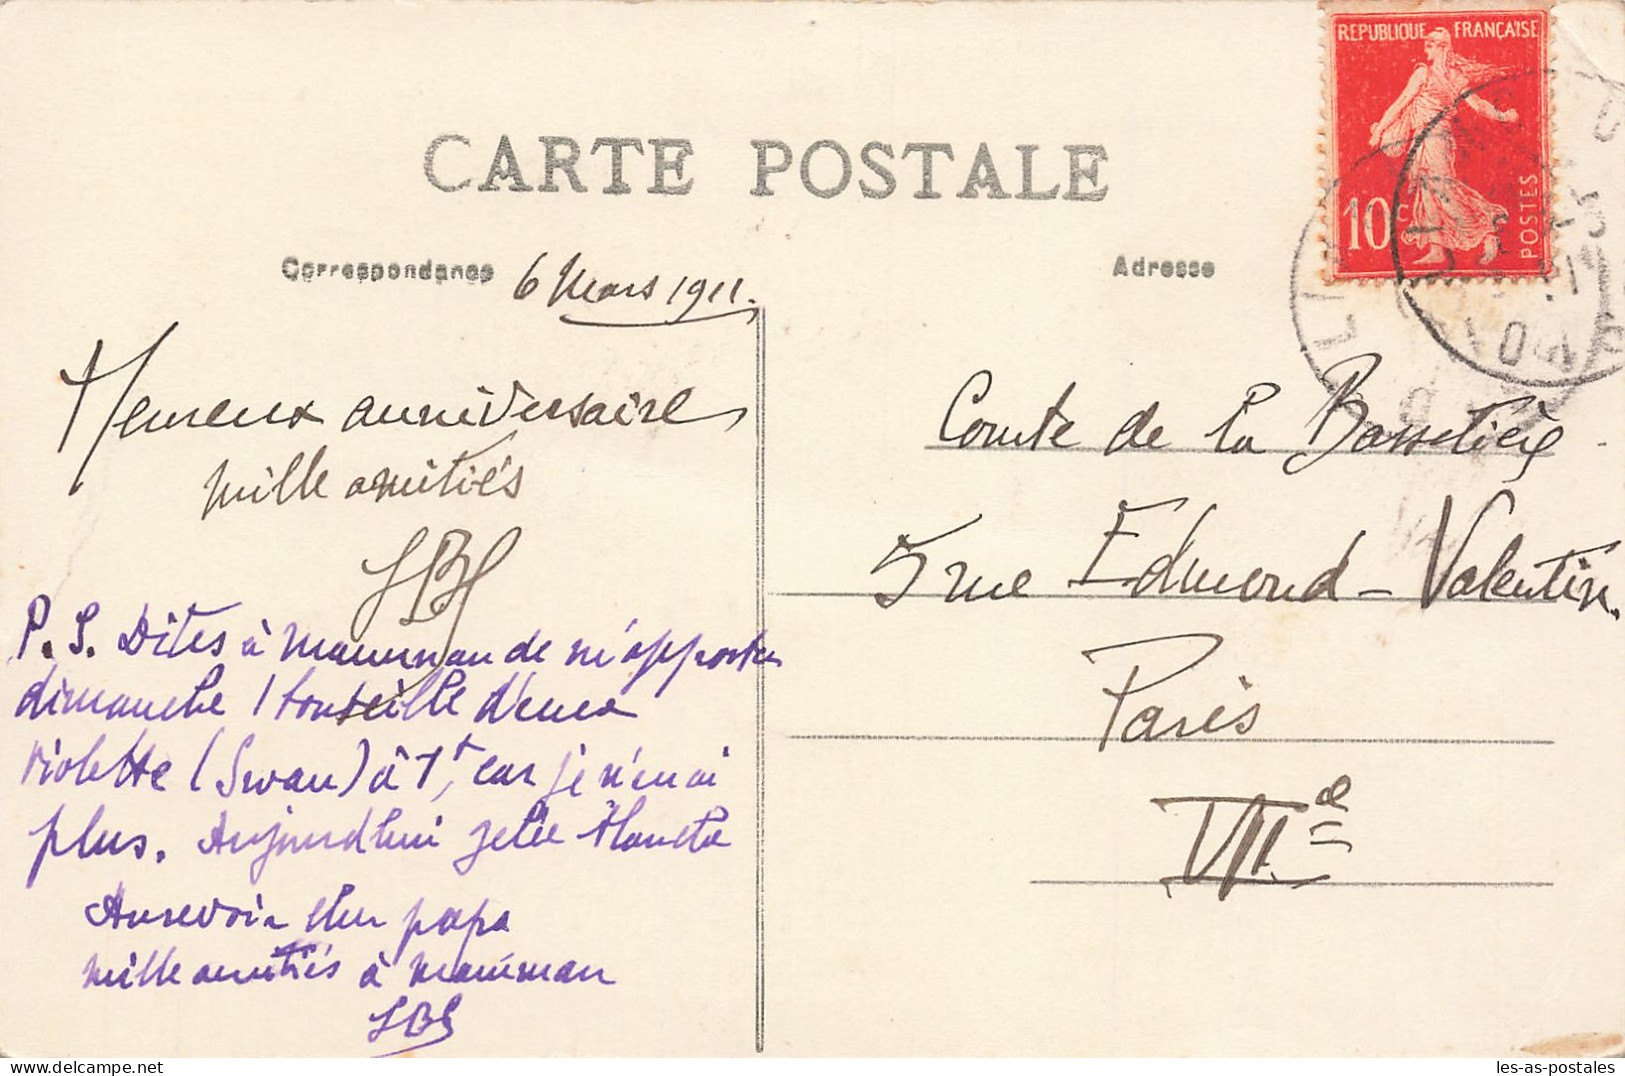 REPUBLIQUE FRANÇAISE
10c
POSTES
CARTE POSTALE
Correspondance
Adresse
6 Mars 1911.
Heureux anniversaire
Mille amitiés
P.S. Dites à Mamman de m'apporter
dimanche 1 bouteille d'eau
violette (Swan) à 1f, car je n'en ai
plus. Aujourd'hui gelée blanche
Aurevoir cher papa
Mille amitiés à Mamman
Comte de la Bassetière
5 rue Edmond-Valentin.
Paris
VIIe
les-as-postales